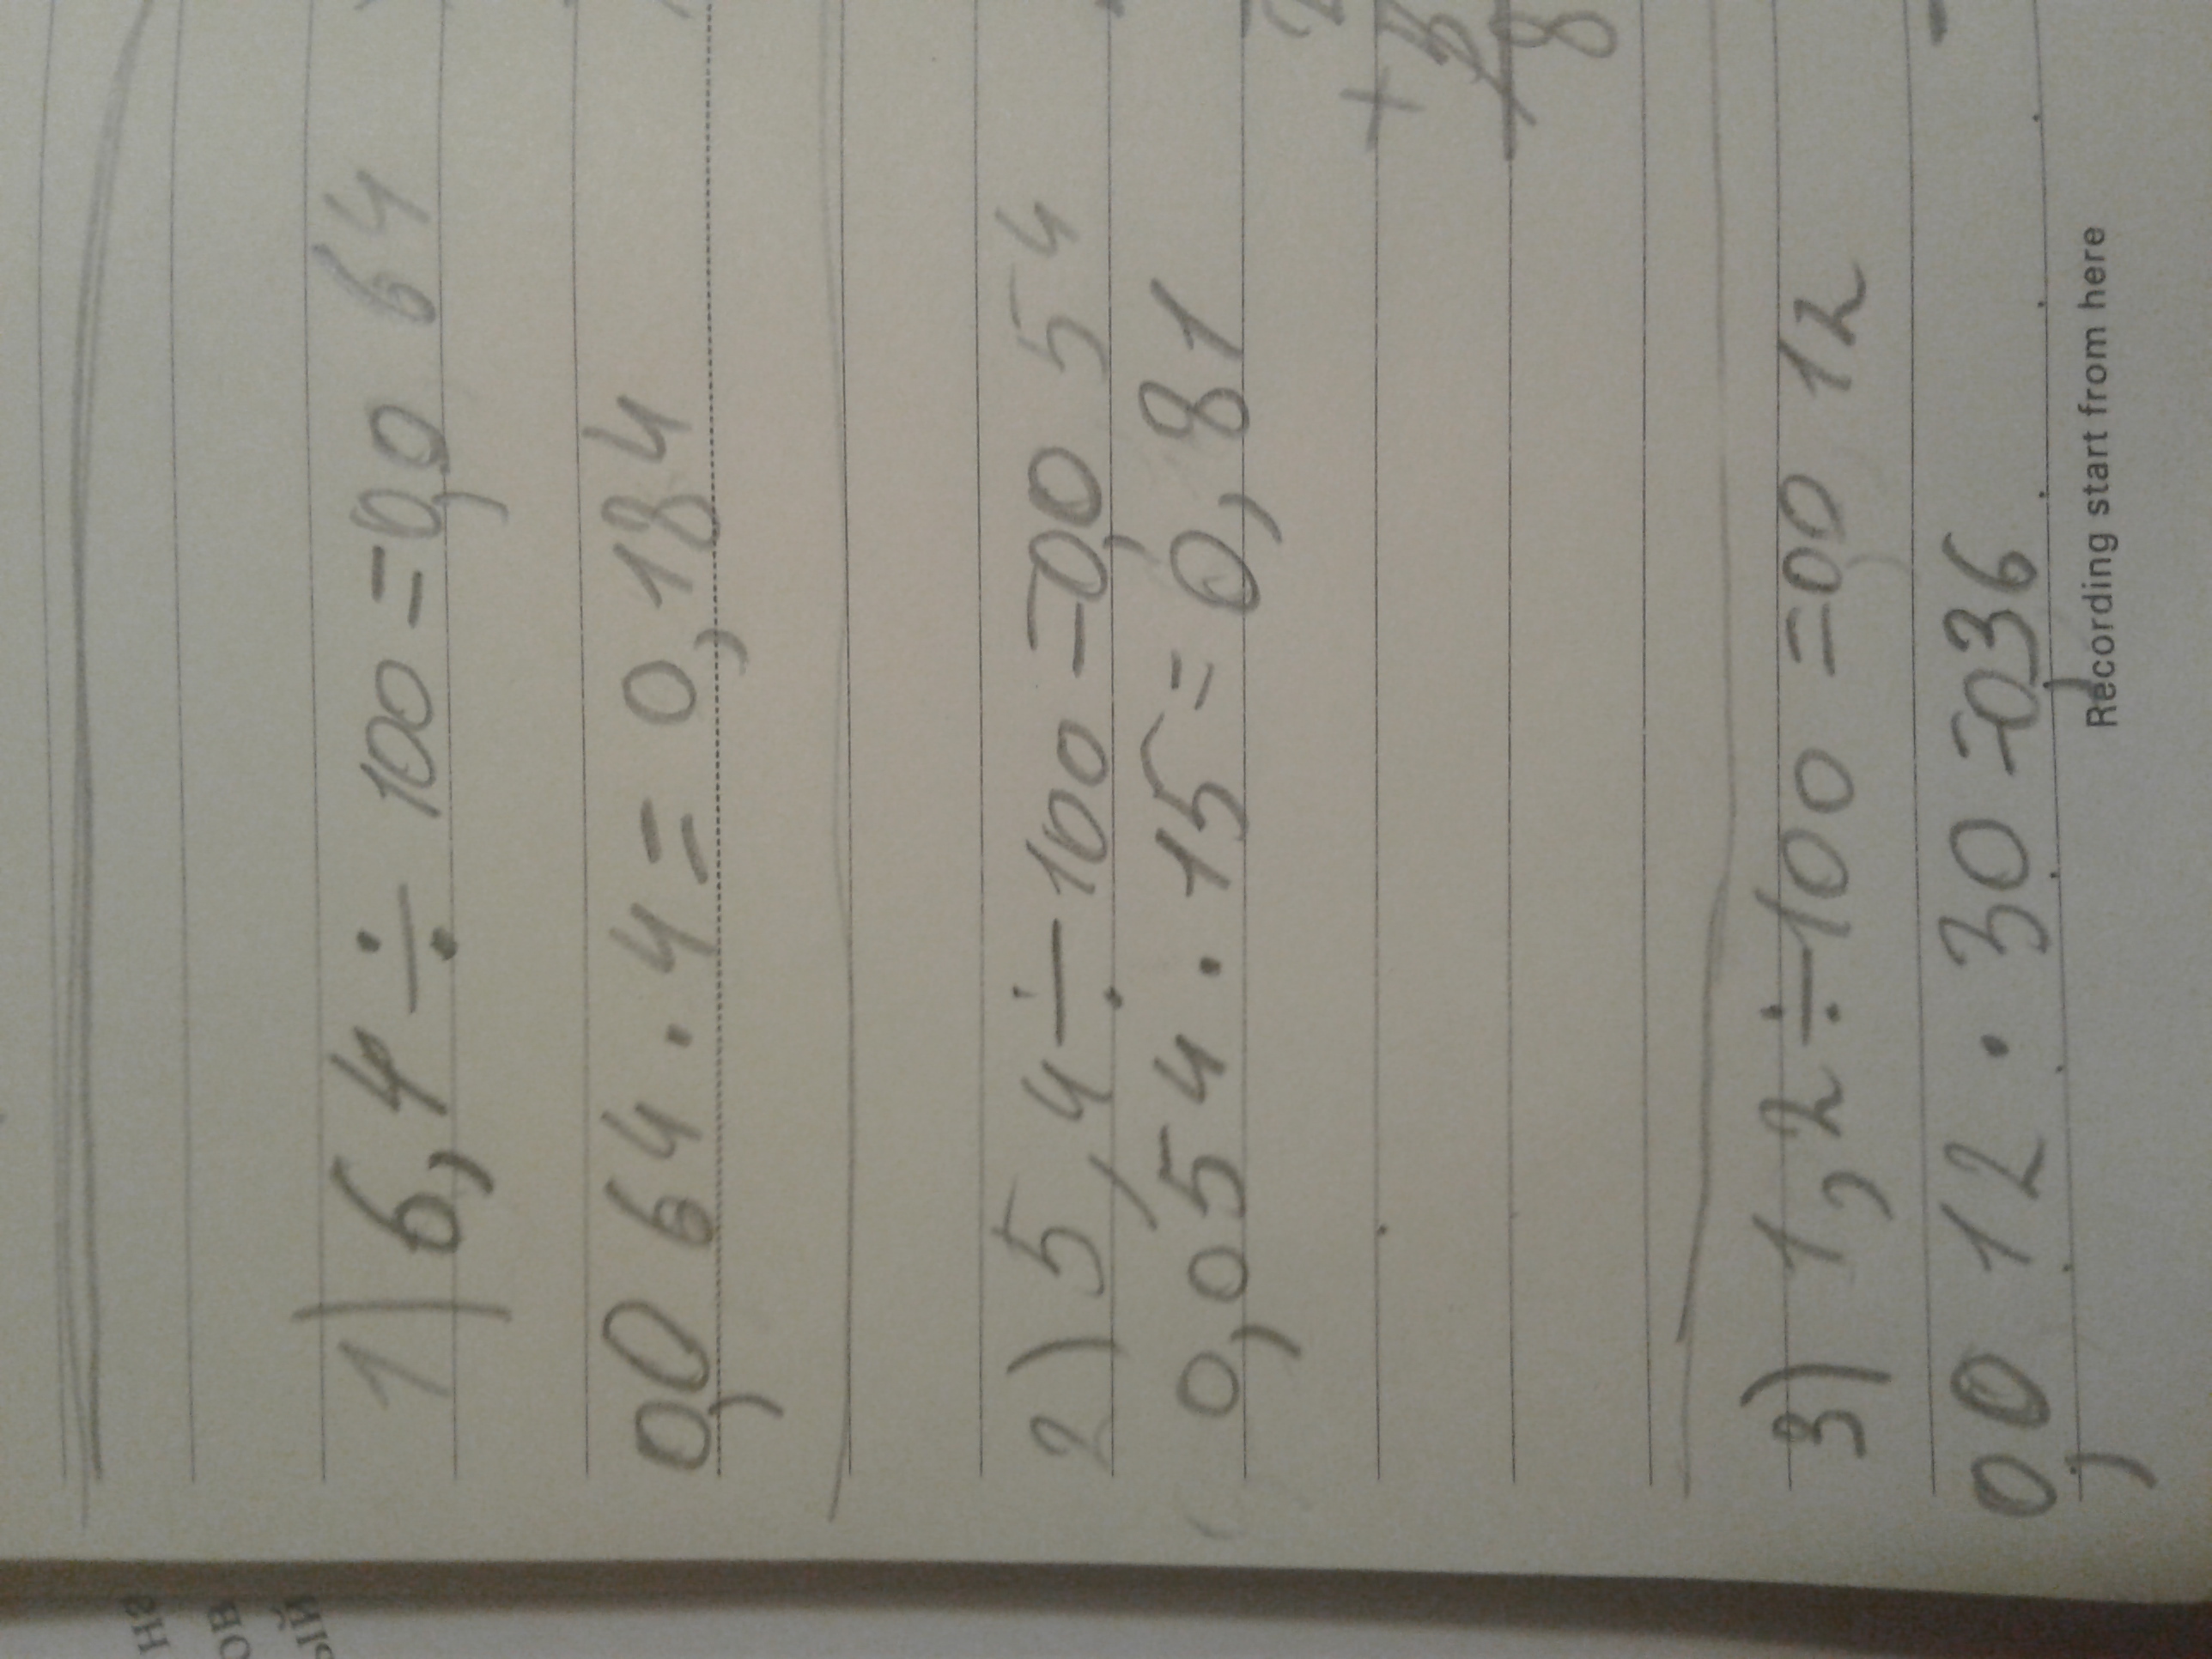 1) 6,4 ÷ 100 = 0,0 64
0,0 64 · 4 = 0,184
2) 5,4 ÷ 100 = 0,0 54
0,054 · 15 = 0,81
+
8
3) 1,2 ÷ 100 = 0,0 12
0,0 12 · 30 = 0,36
Recording start from here